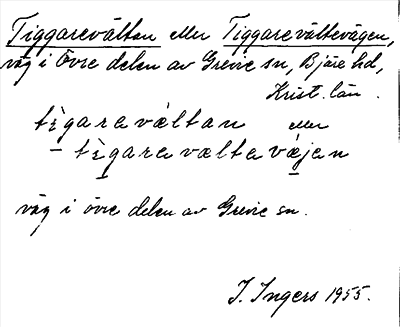 Tiggarevältan eller Tiggarevältevägen,
väg i övre delen av Grevie sn, Bjäre hd,
Krist. län.
tìgarevàltan eller
tìgarevæltevæ̀jen
väg i övre delen av Grevie sn.
I. Ingers 1955.